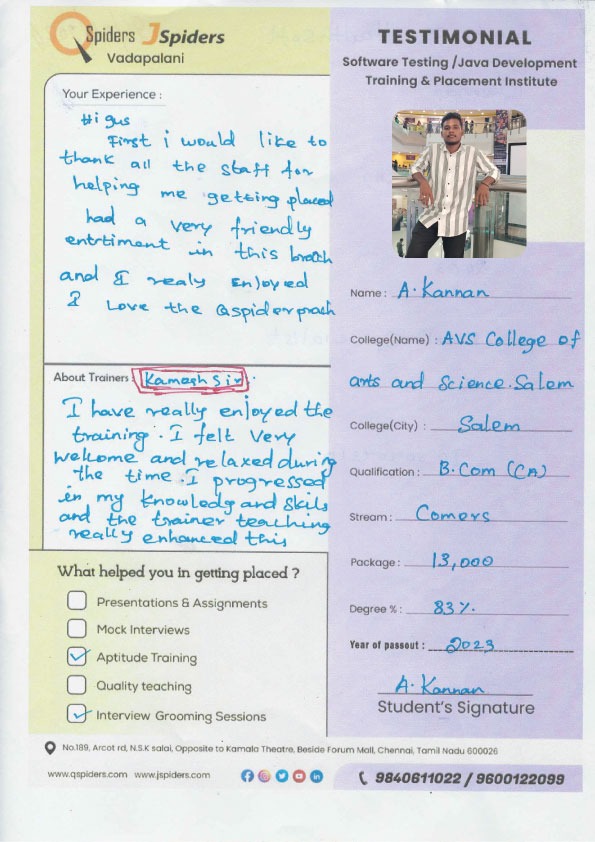 QSpiders JSpiders
Vadapalani
Your Experience :
Hi gus
First i would like to
thank all the staff for
helping me getting placed
had a very friendly
entrtiment in this brach
and I realy Enjoyed
I Love the Qspider
About Trainers : Kamesh Sir.
I have really enjoyed the
training. I felt very
welcome and relaxed during
the time. I progressed
in my knowledg and skils
and the trainer teaching
really enhanced this
What helped you in getting placed ?
Presentations & Assignments
Mock Interviews
Aptitude Training
Quality teaching
Interview Grooming Sessions
TESTIMONIAL
Software Testing /Java Development
Training & Placement Institute
Name : A. Kannan
College(Name) : AVS College of
arts and Science. Salem
College(City) : Salem
Qualification : B.Com (CA)
Stream : Comers
Package : 13,000
Degree % : 83%.
Year of passout : 2023
A. Kannan
Student's Signature
No.189, Arcot rd, N.S.K salai, Opposite to Kamala Theatre, Beside Forum Mall, Chennai, Tamil Nadu 600026
www.qspiders.com www.jspiders.com
9840611022 / 9600122099